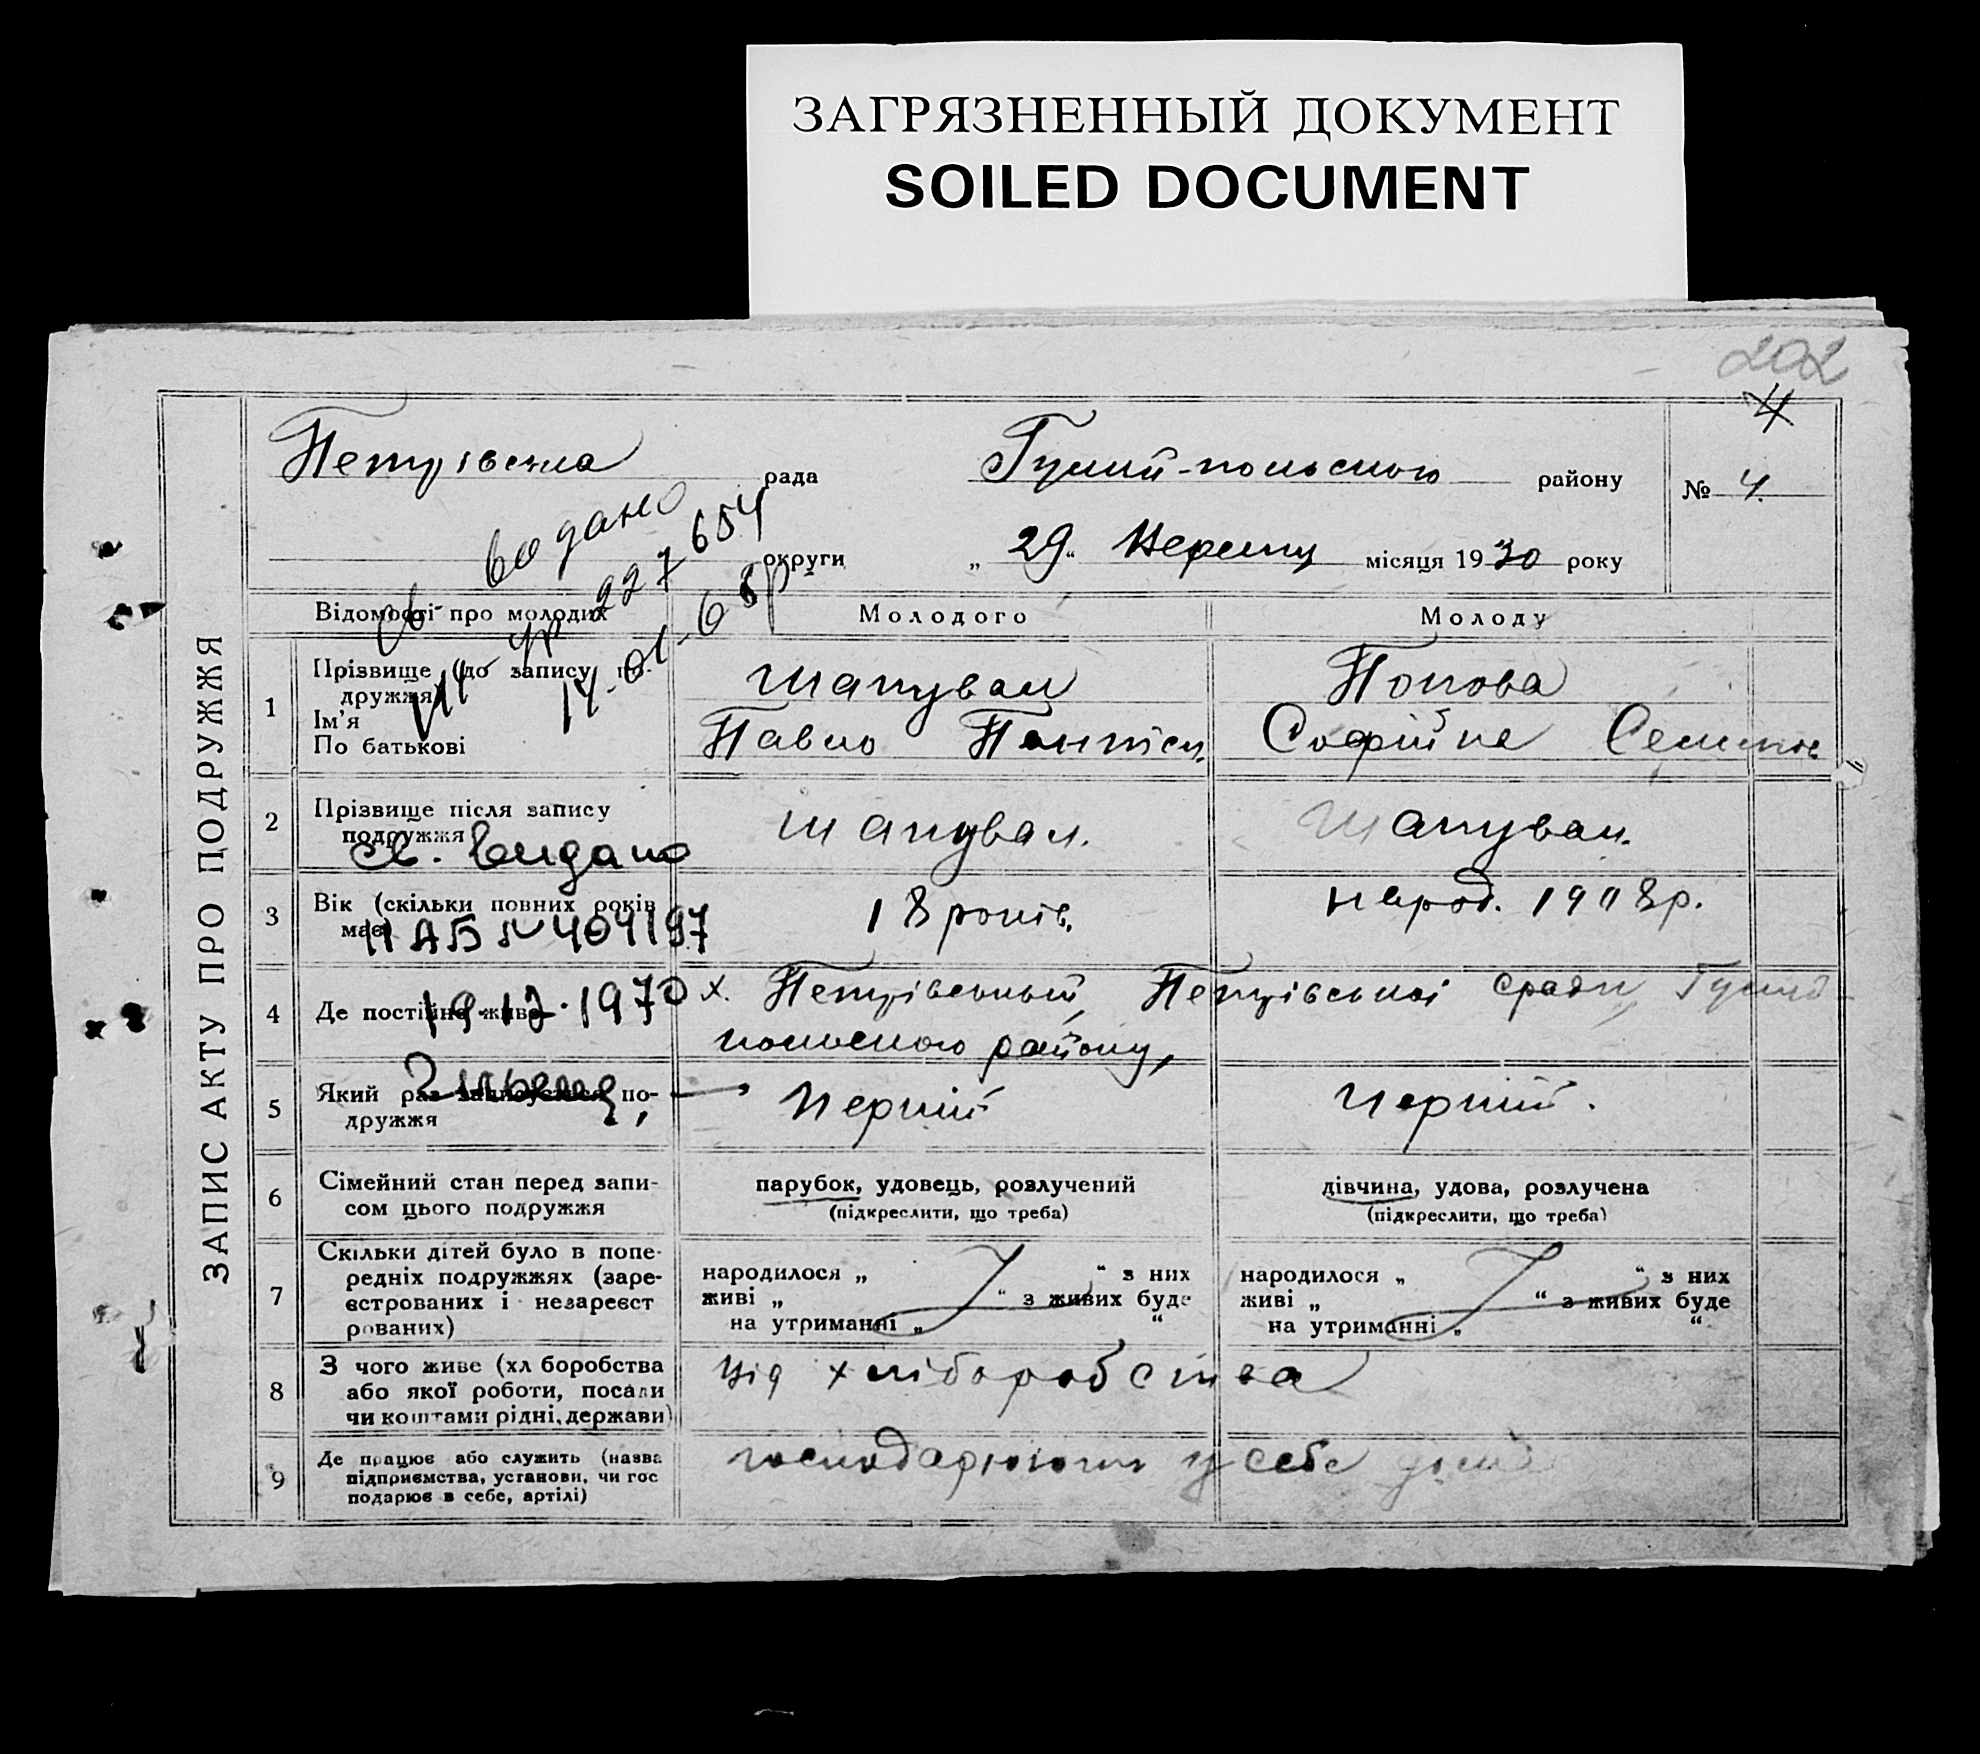 ЗАГРЯЗНЕННЫЙ ДОКУМЕНТ
SOILED DOCUMENT
202
4
Петрівська рада Гуляй-польського району № 4.
округи „ 29 “ Вересня місяця 1930 року
видано
227654
ЗАПИС АКТУ ПРО ПОДРУЖЖЯ
Відомості про молодих Молодого Молоду
1 Прізвище (до запису по-
дружжя)
Ім'я
По батькові
Шапувал Попова
Павло Софія
2 Прізвище після запису
подружжя
Шапувал. Шапувал.
св. видано
3 Вік (скільки повних років
має)
18 років. народ. 1908 р.
II АБ № 404197
4 Де постійно живе
19.12.1970
х. Петрівський, Петрівської сради Гуляй-
польського району,
5 Який раз записується по-
дружжя
Перший Перший.
6 Сімейний стан перед запи-
сом цього подружжя
парубок, удовець, розлучений дівчина, удова, розлучена
(підкреслити, що треба) (підкреслити, що треба)
7 Скільки дітей було в попе-
редніх подружжях (заре-
єстрованих і незареєст
рованих)
народилося „ “ з них народилося „ “ з них
живі „ “ з живих буде живі „ “ з живих буде
на утриманні „ “ на утриманні „ “
8 З чого живе (хл боробства
або якої роботи, посади
чи коштами рідні, держави)
Від хліборобства
9 Де працює або служить (назва
підприємства, установи, чи гос
подарює в себе, артілі)
господарюють у себе дома